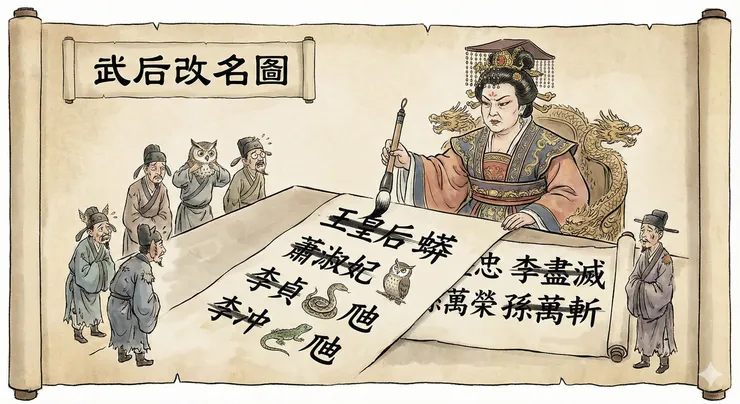 武后改名圖
王皇后 蟒
蕭淑妃
李貞
李冲
忠 李盡滅
萬榮 孫萬斬